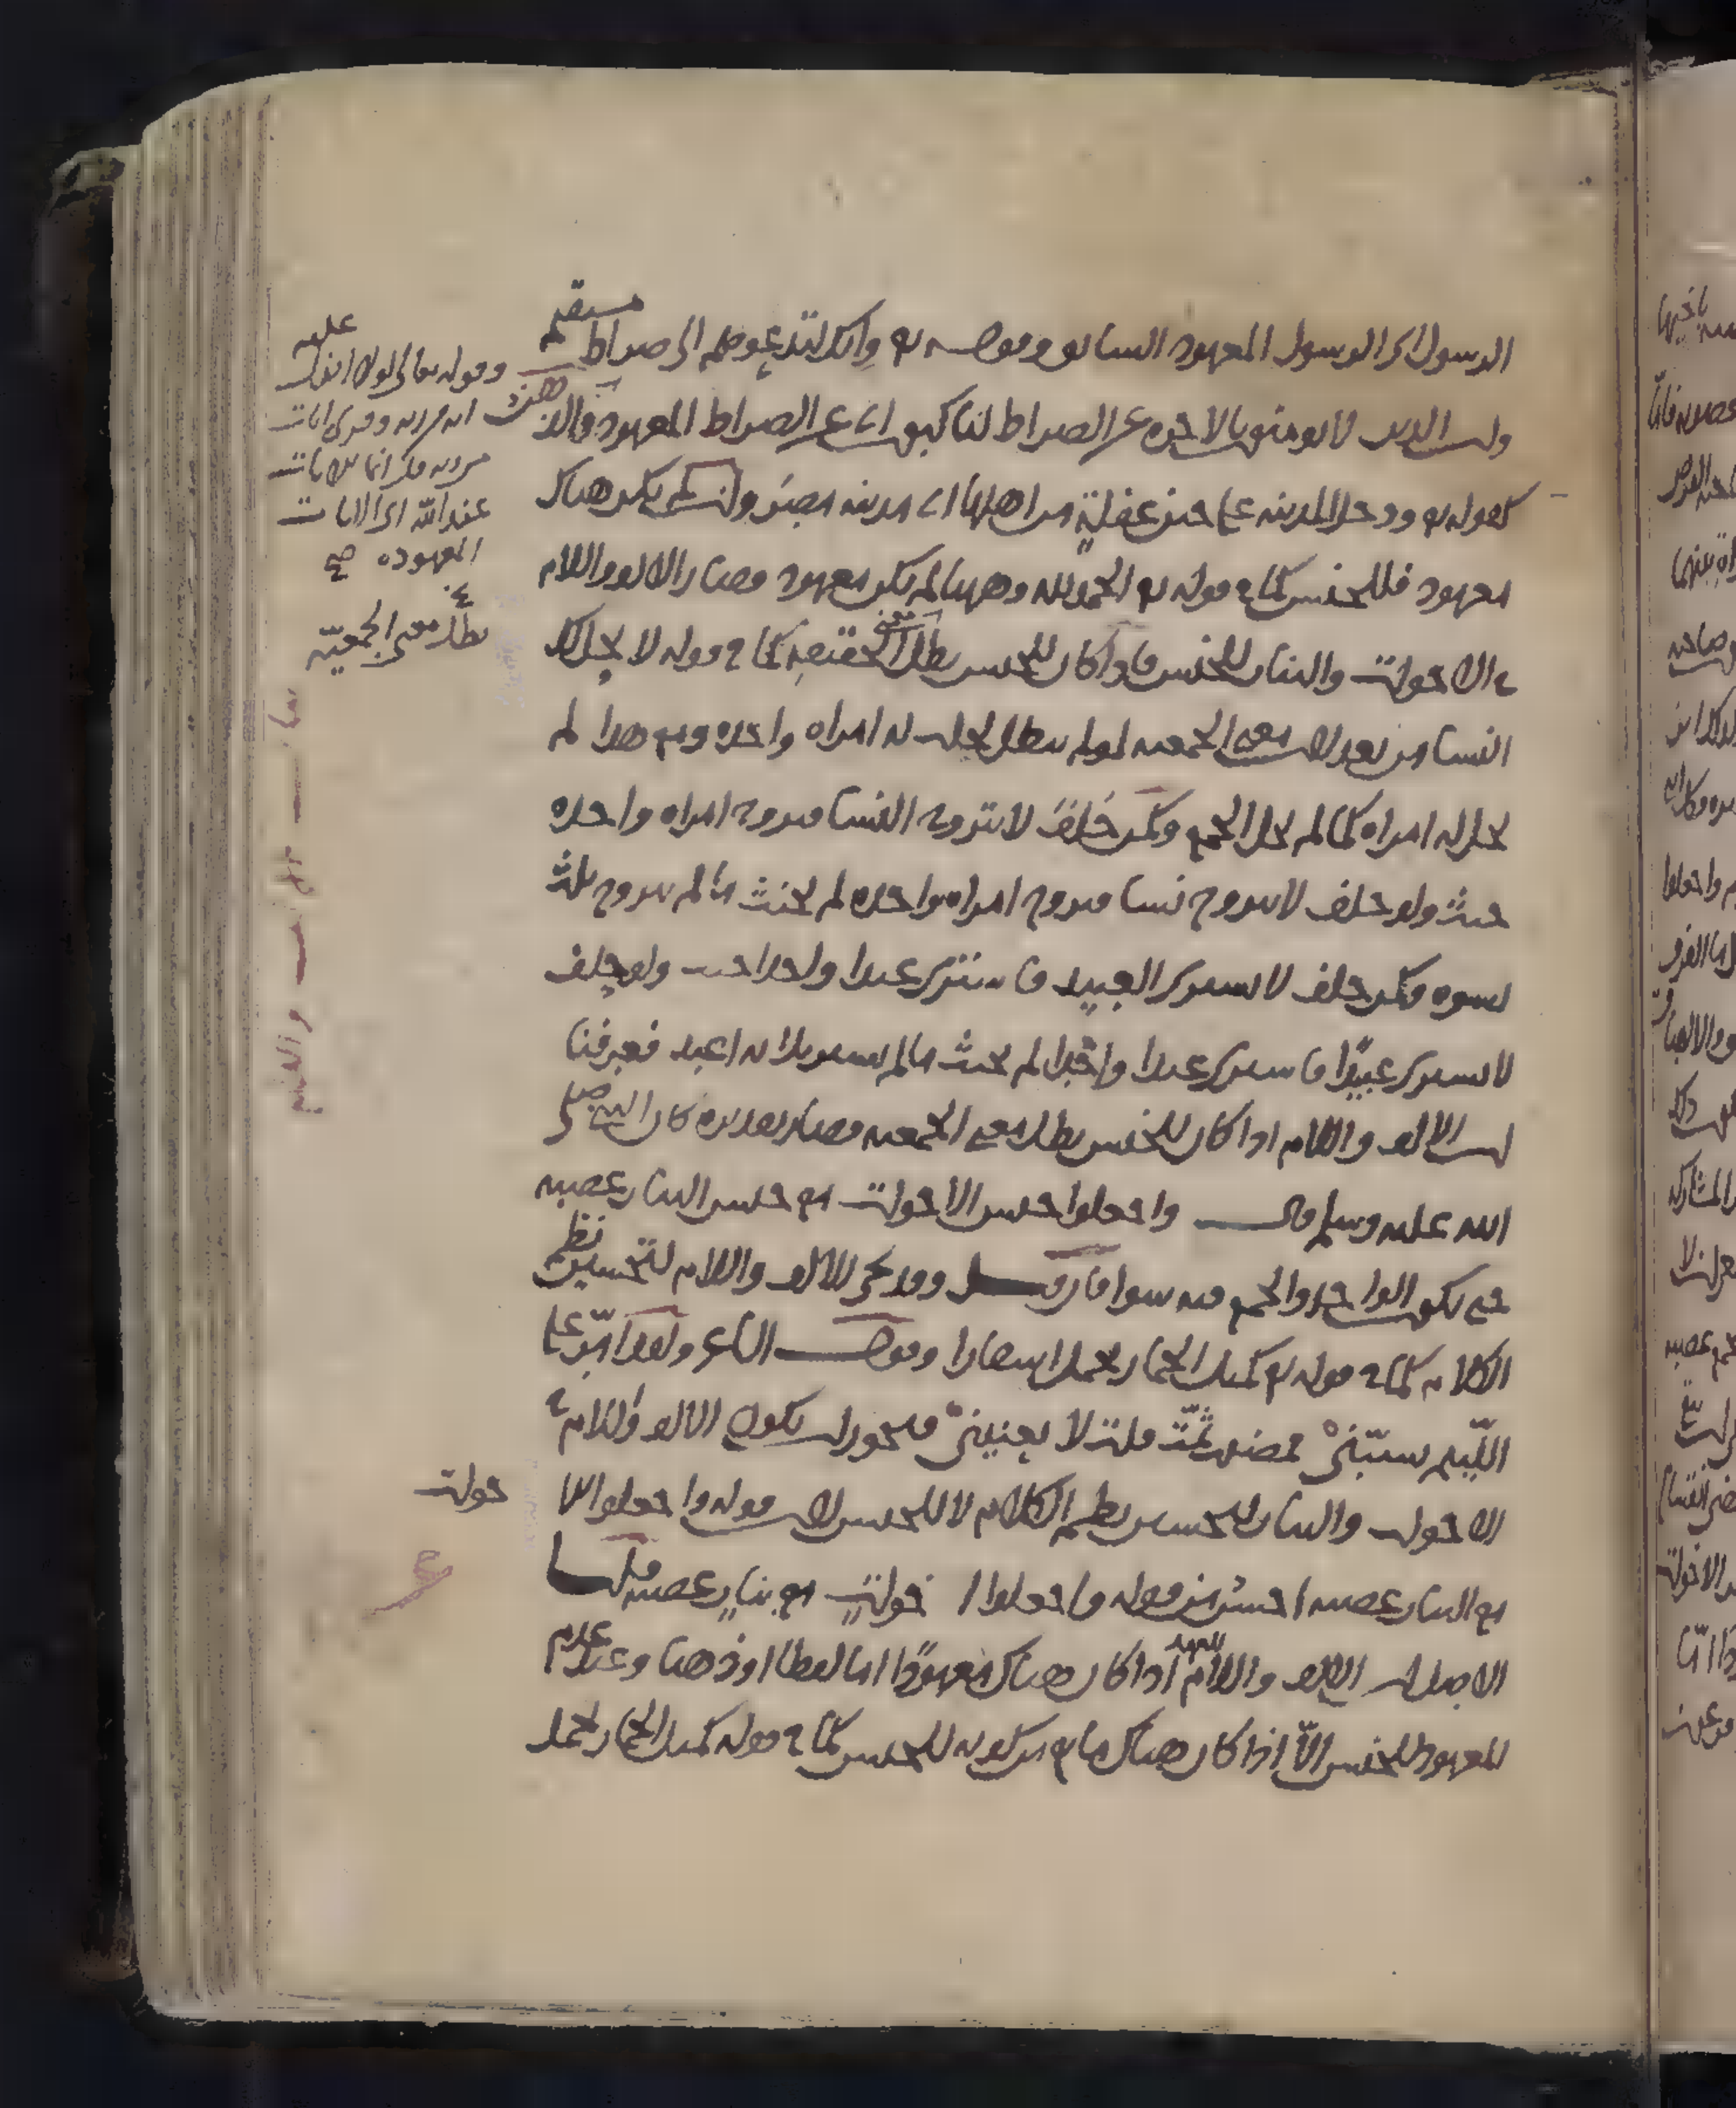 الرسول اى الرسول المعهود السابق وقوله تع وانك لتدعوهم الى صراط مستقيم
وان الذين لا يومنون بالاخرة عن الصراط لناكبون اى عن الصراط المعهود والذ هنى
كقوله تع ودخل المدينة على حين غفلة من اهلها اى مدينة مصر وان لم يكن هناك
معهود فللجنس كما فى قوله تع الحمد لله وههنا لم يكن معهود فصار الالف واللام
فى الاخوات والبنات للجنس فاذا كان للجنس بطل معنى الحقيقة كما فى قوله لا يحل لك
النسا من بعد لان معنى الجمعية لو لم يبطل لحلت له امراة واحدة ومع هذا لم
يحل له امراة كما لم يحل الجمع وكمن حلف لا يتزوج النسا فتزوج امراة واحدة
حنث ولو حلف لا يتزوج نسا فتزوج امراة واحدة لم يحنث ما لم يتزوج ثلث
نسوة وكمن حلف لا يشترى العبيد فاشترى عبدا واحدا حنث ولو حلف
لا يشترى عبيدا فاشترى عبدا واحدا لم يحنث ما لم يشتر ثلاثة اعبد فعرفنا
ان الالف واللام اذا كان للجنس بطل معنى الجمعية فصار تقديره كان النبى صلى
الله عليه وسلم قال واجعلوا جنس الاخوات مع جنس البنات عصبة
حتى يكون الواحد والجمع فيه سوا فان قيل وقد يجى الالف واللام لتحسين نظم
الكلام كما فى قوله تع كمثل الحمار يحمل اسفارا وقول الشاعر ولقد امر على
اللئيم يسبنى فمضيت ثمت قلت لا يعنينى فيجوز ان يكون الالف واللام فى
الاخوات والبنات لتحسين نظم الكلام لا للجنس لان قوله واجعلوا الا خوات
مع البنات عصبة احسن من قوله واجعلوا اخوات مع بنات عصبة قلنا
الاصل ان الالف واللام للعهد اذا كان هناك معهودا اما لفظا او ذهنا وعند عدم
المعهود للجنس الا اذا كان هناك مانع من كونه للجنس كما فى قوله كمثل الحمار يحمل
وقوله تعالى لولا انزل عليه
اية من ربه وقرى ايات
من ربه قل انما الايات
عند الله اى الايات
المعهودة صح
بطل معنى الجمعية